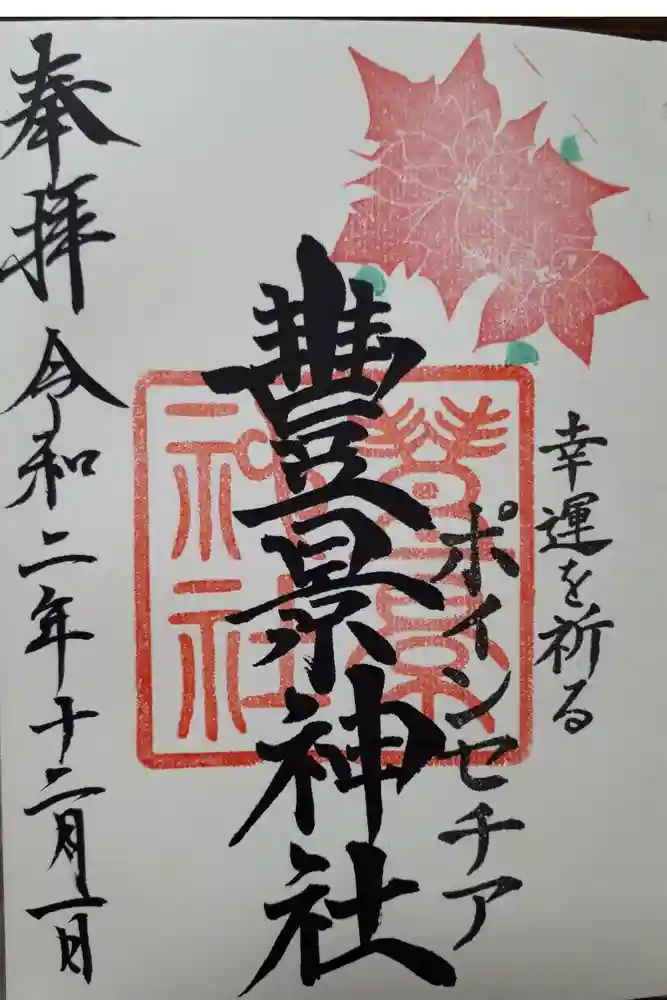 幸運を祈る
ポインセチア
豊景神社
豐景神社
奉拝 令和二年十二月一日